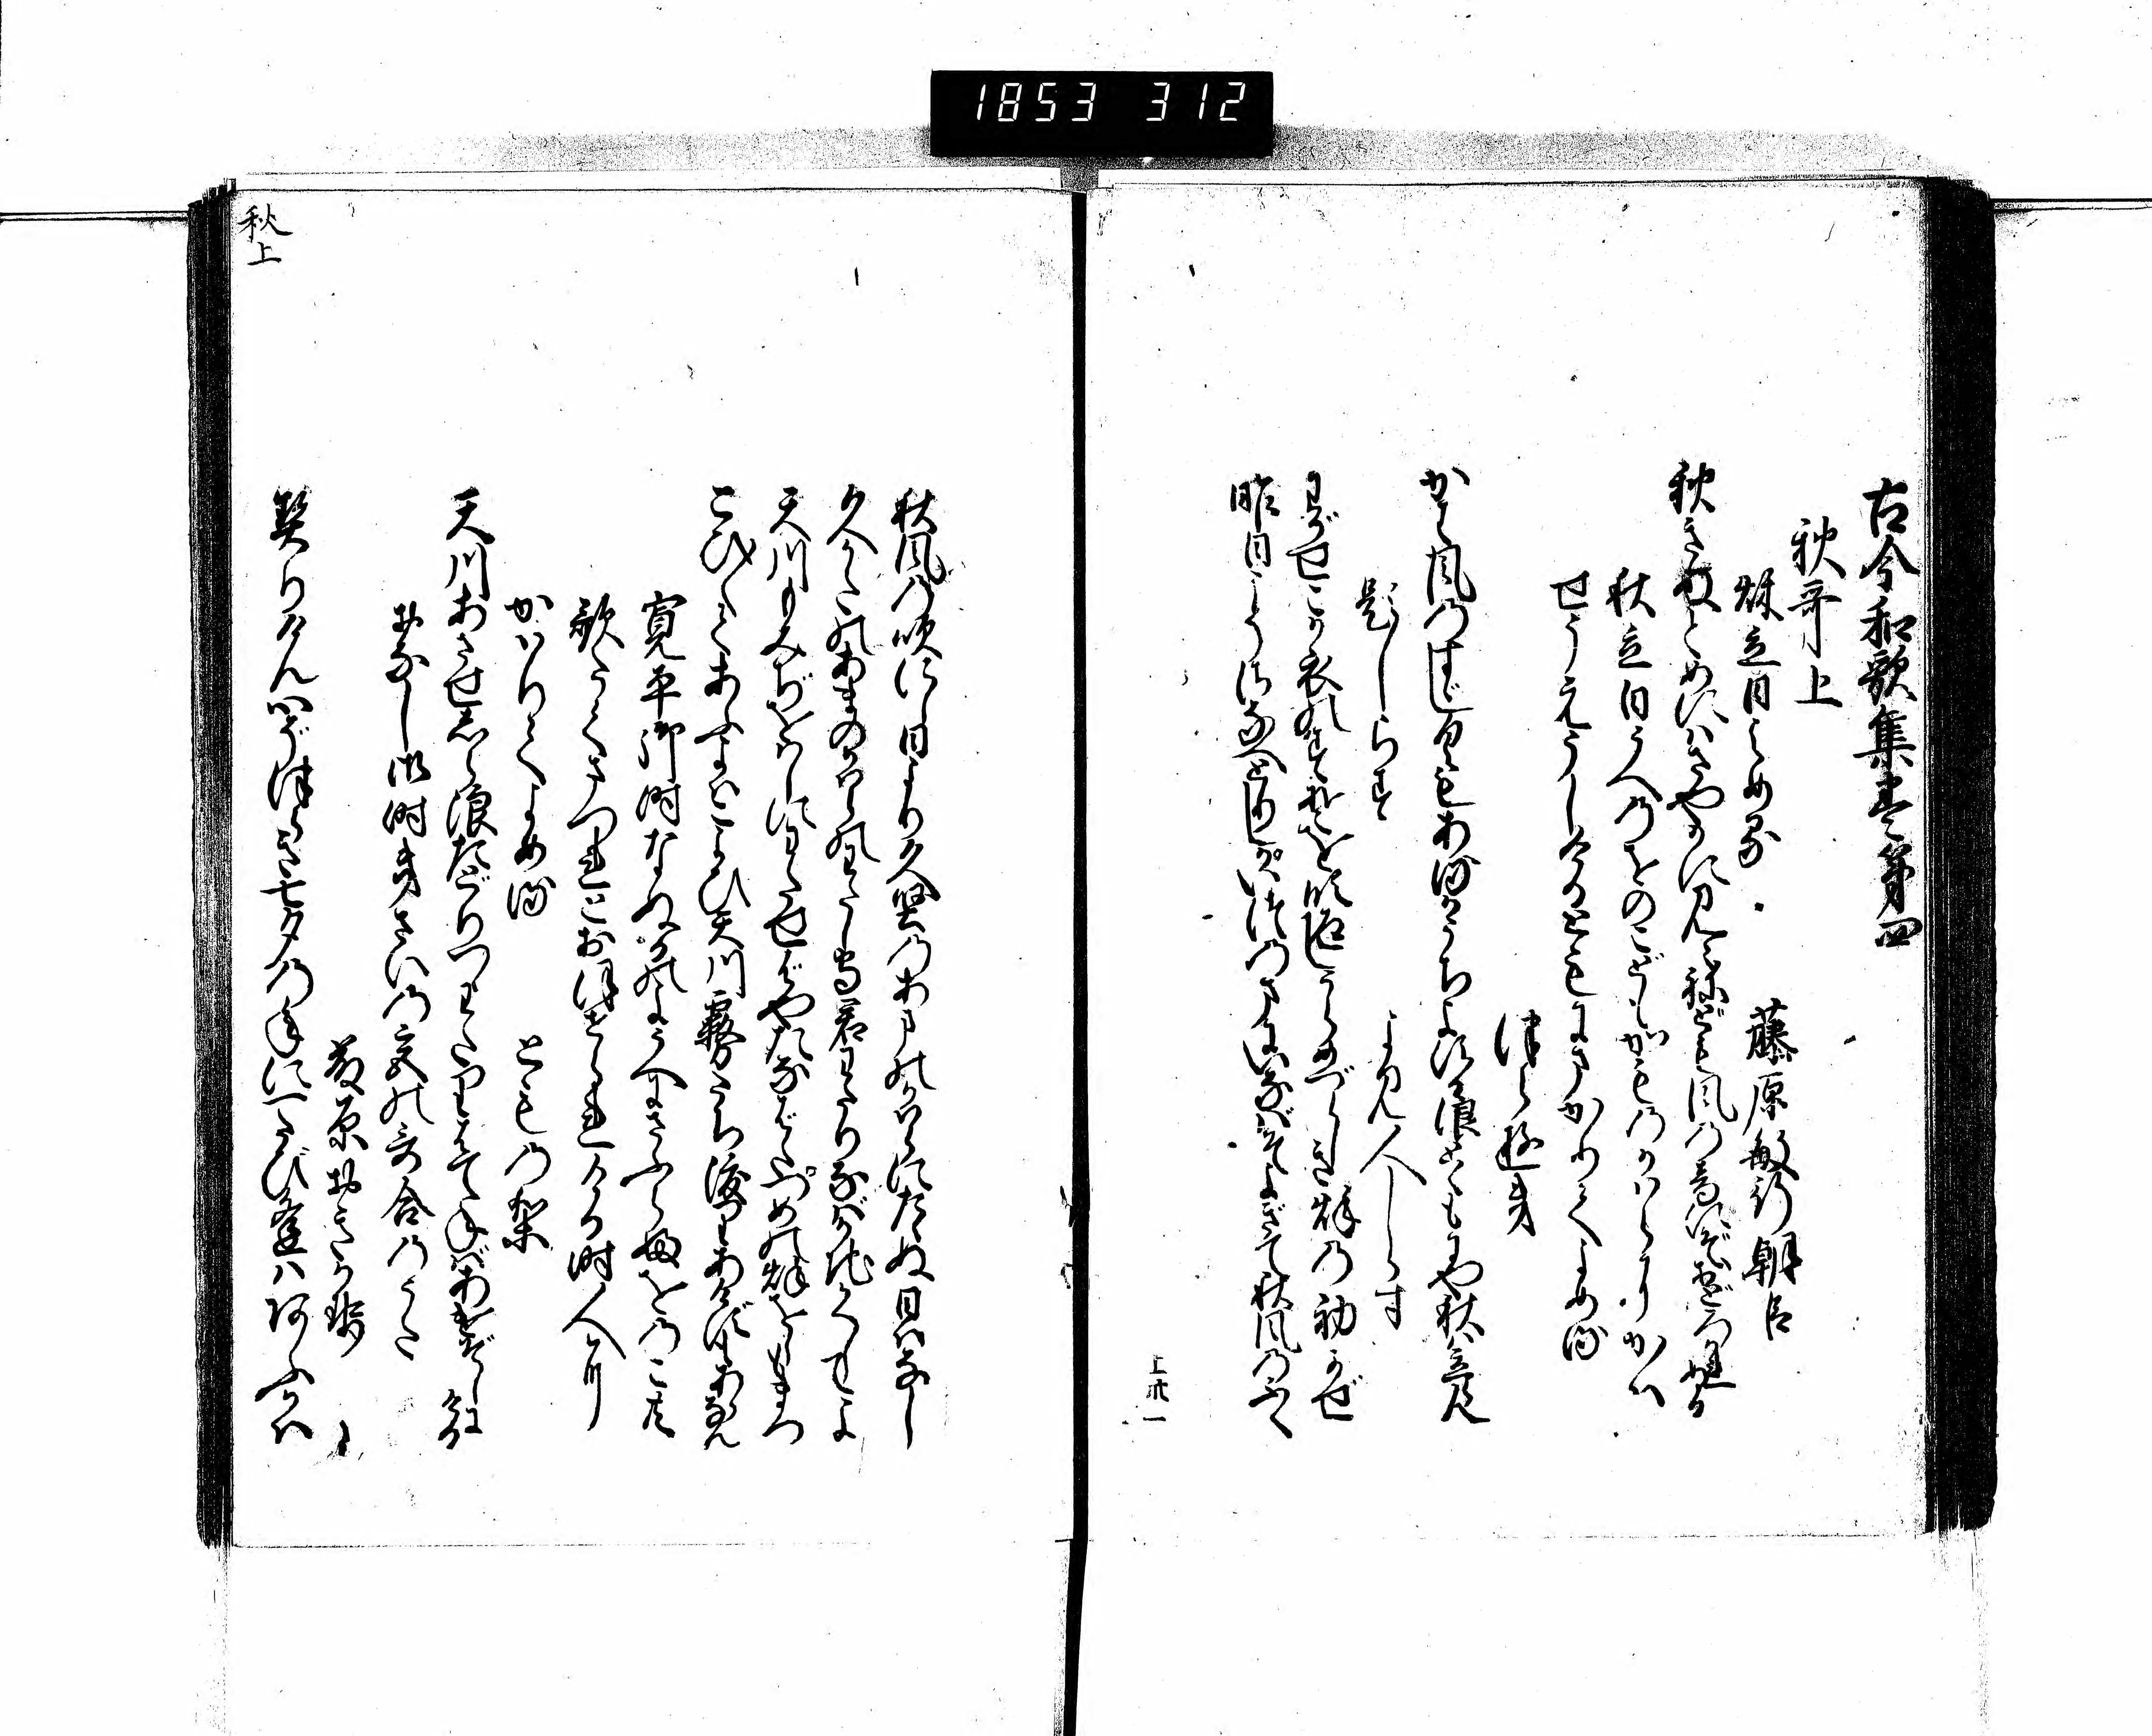 1853 312
古今和歌集巻第四
秋哥上
秋立日よめる
藤原敏行朝臣
秋きぬとめにはさやかに見えねども風の音にぞおどろかれぬる
秋立日うへのをのこどもかものかはらにかは
せうえうしけるともにまかりてよめる
つらゆき
かは風のすゞしくもあるかうちよする浪とともにや秋は立らん
題しらす
よみ人しらす
わがせこが衣のすそを吹返しうらめづらしき秋の初かぜ
昨日こそさなへとりしかいつのまにいなばそよぎて秋風のふく
上ノ廿一
秋上
秋風の吹にし日より久堅のあまのかはらにたゝぬ日はなし
久かたのあまのかはらのわたし守君わたりなばかぢかくしてよ
天川もみぢをはしにわたせばやたなばたつめの秋をしもまつ
こひ〳〵てあふ夜はこよひ天川霧立わたりあけずもあらなん
寛平御時なぬかのようへにさふらふをのこ共
歌たてまつれとおほせられける時人にか
かはりてよめる
とものり
天川あさせしら浪たどりつゝわたりはてねばあけぞしにける
おなし御時きさいの宮の哥合のうた
藤原おきかぜ
契りけん心ぞつらき七夕の年に一たび逢はあふかは